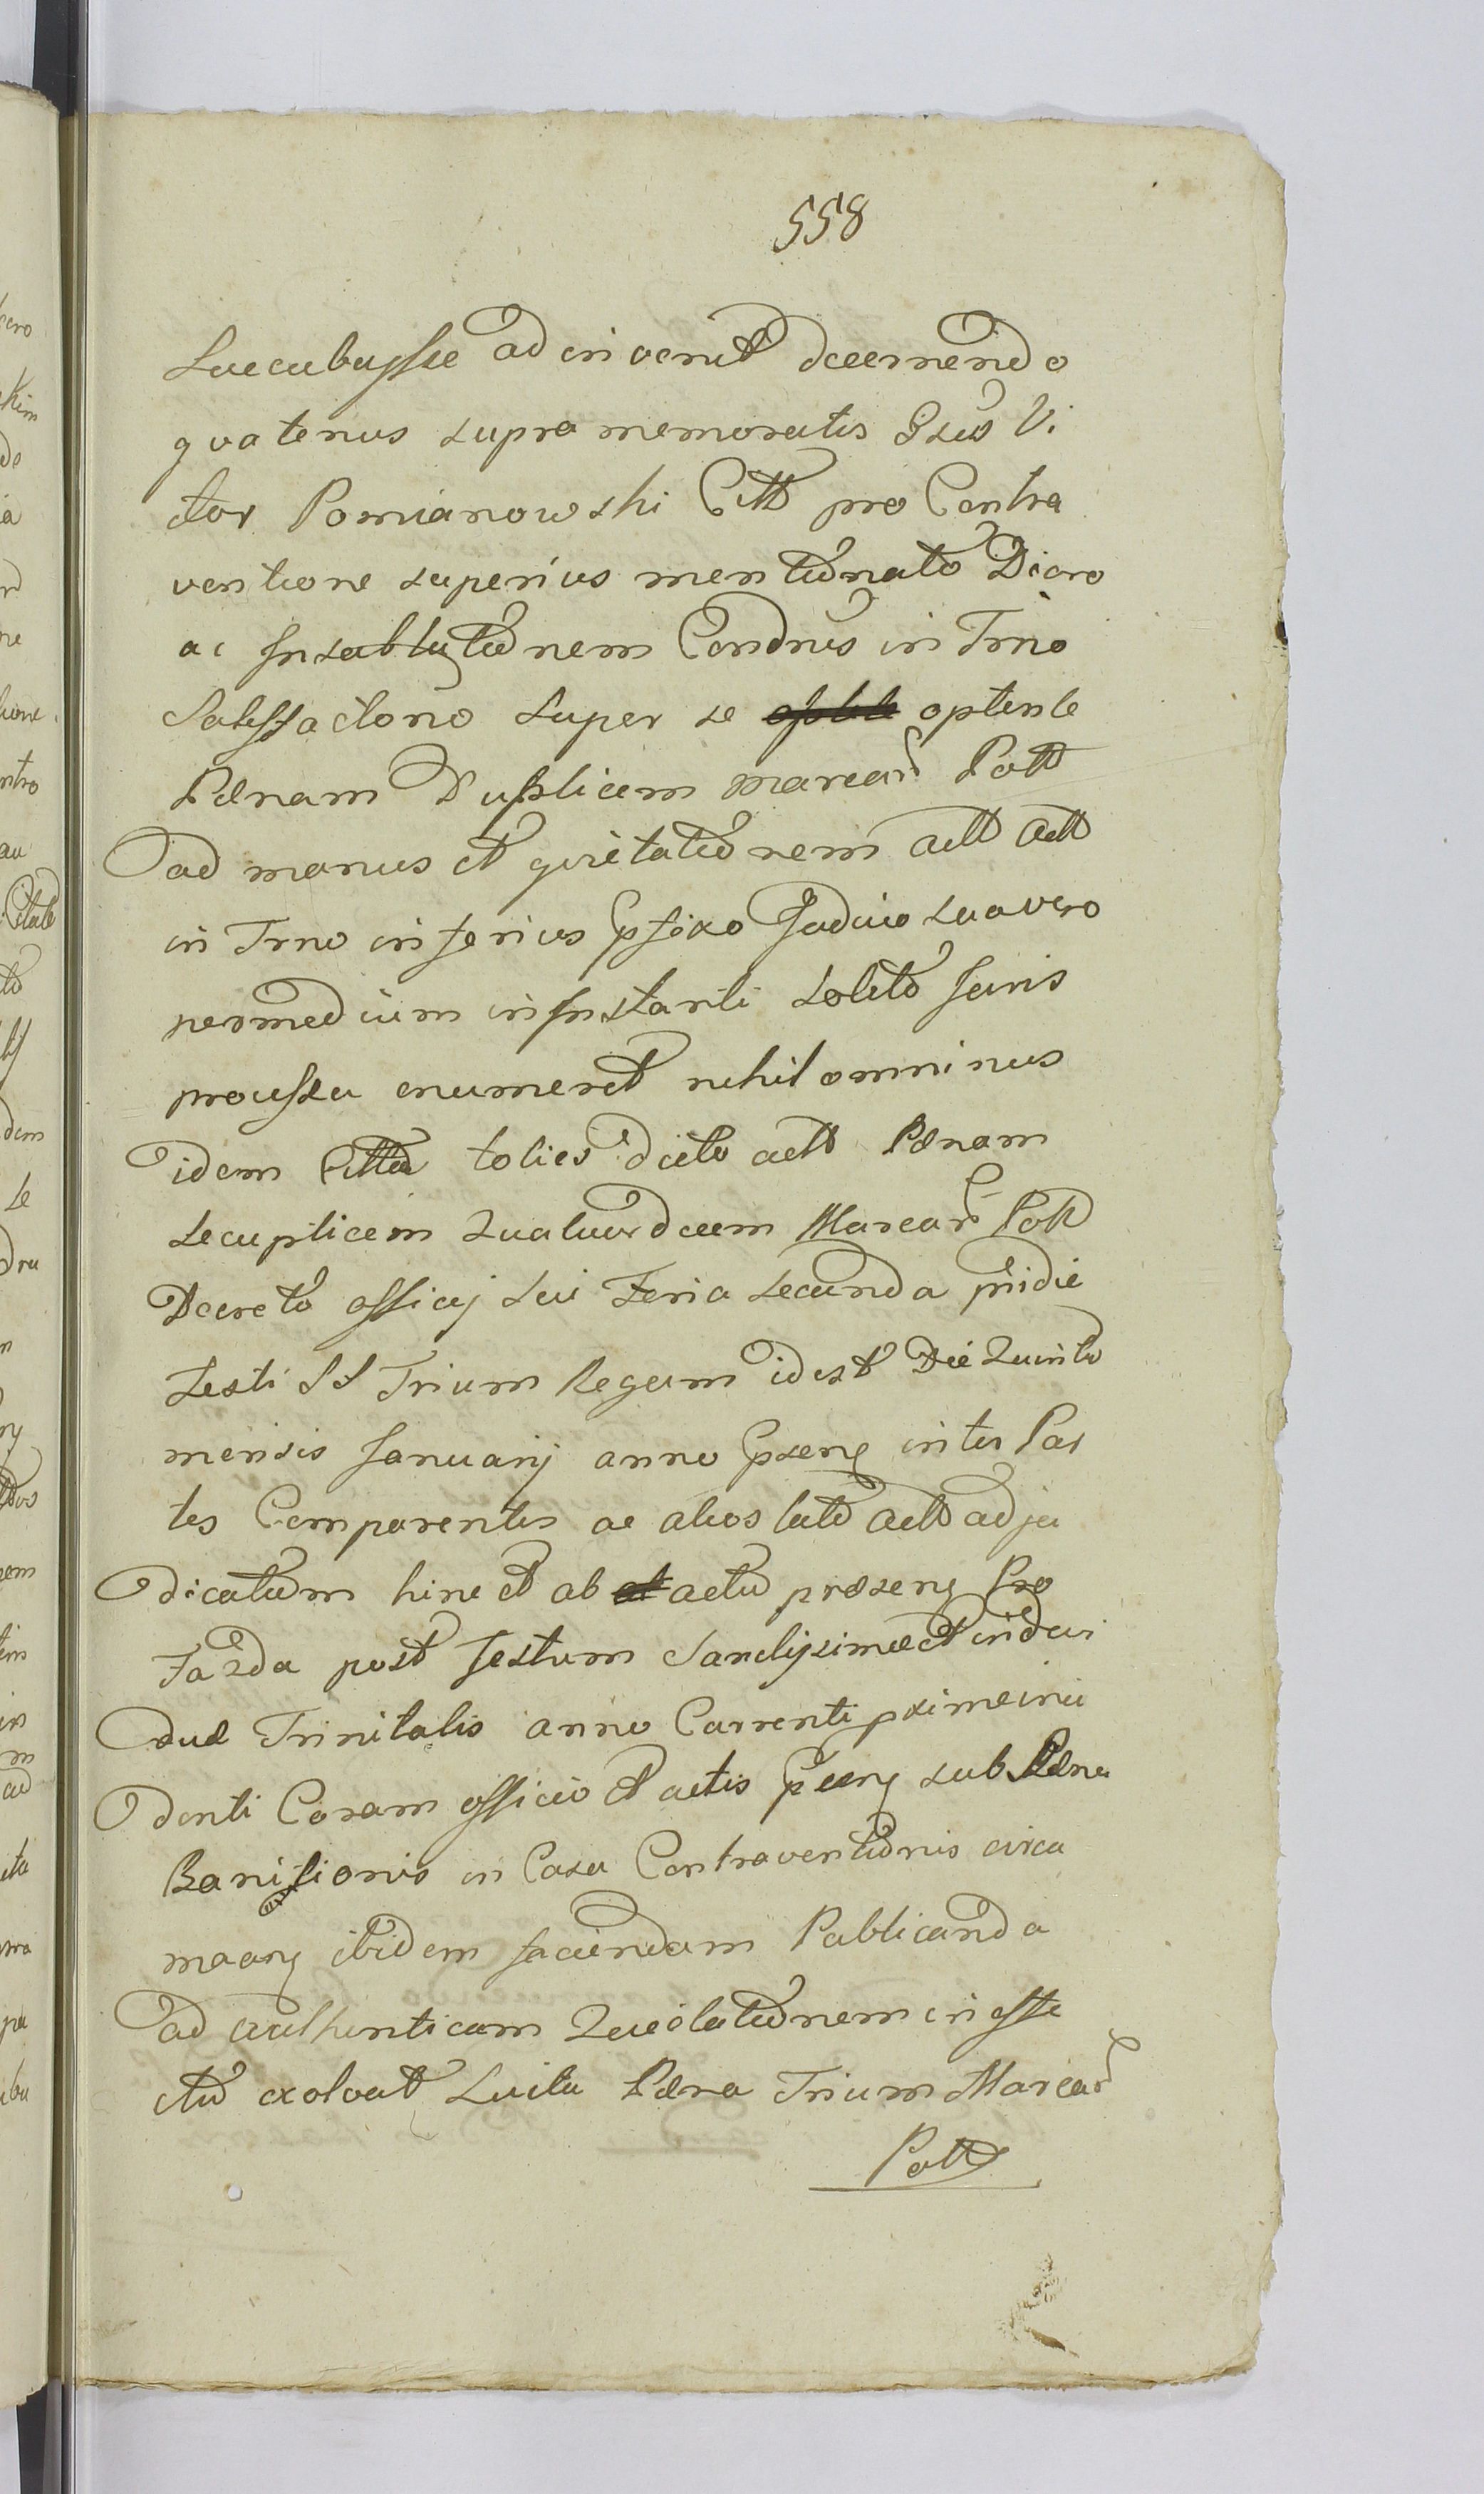 558
Succubuisse adinvenit decernendo
quatenus supra memoratus Gsus Vi
ctor Pomianowski Citt pro Contra
ventione superius mentionato Dicro
ac Insolutionem Condnis in Trno
Satisfactorio super se optente
Pænam Duplicem Marcar Poll
ad manus et quietationem actt actt
in Trno inferius pfixo Judicio suo vero
permedium in Instanti solito Juris
processu enumeret nihilominus
idem Citto toties dicto actt Pænam
secuplicem Quatuordecem Marcar Poll
Decreto officij sui Feria secunda pridie
Festi SS Trium Regum idest Die Quinta
mensis Januarij anno psenq inter Par
tes Comparentes ac alios lato actt adju
dicatam hinc et ab actu præsenq Pro
Fasda post Festum Sanctissimæ et indivi
duæ Trinitatis anno Currenti pximeinci
denti Coram officio et actis psenq sub Pæna
Banisionis in Casu Contraventionis circa
ibidem faciendam Publicanda
ad authenticam Quietationem in effe
ctu exolvat Luita Pæna Trium Marcar
Poll